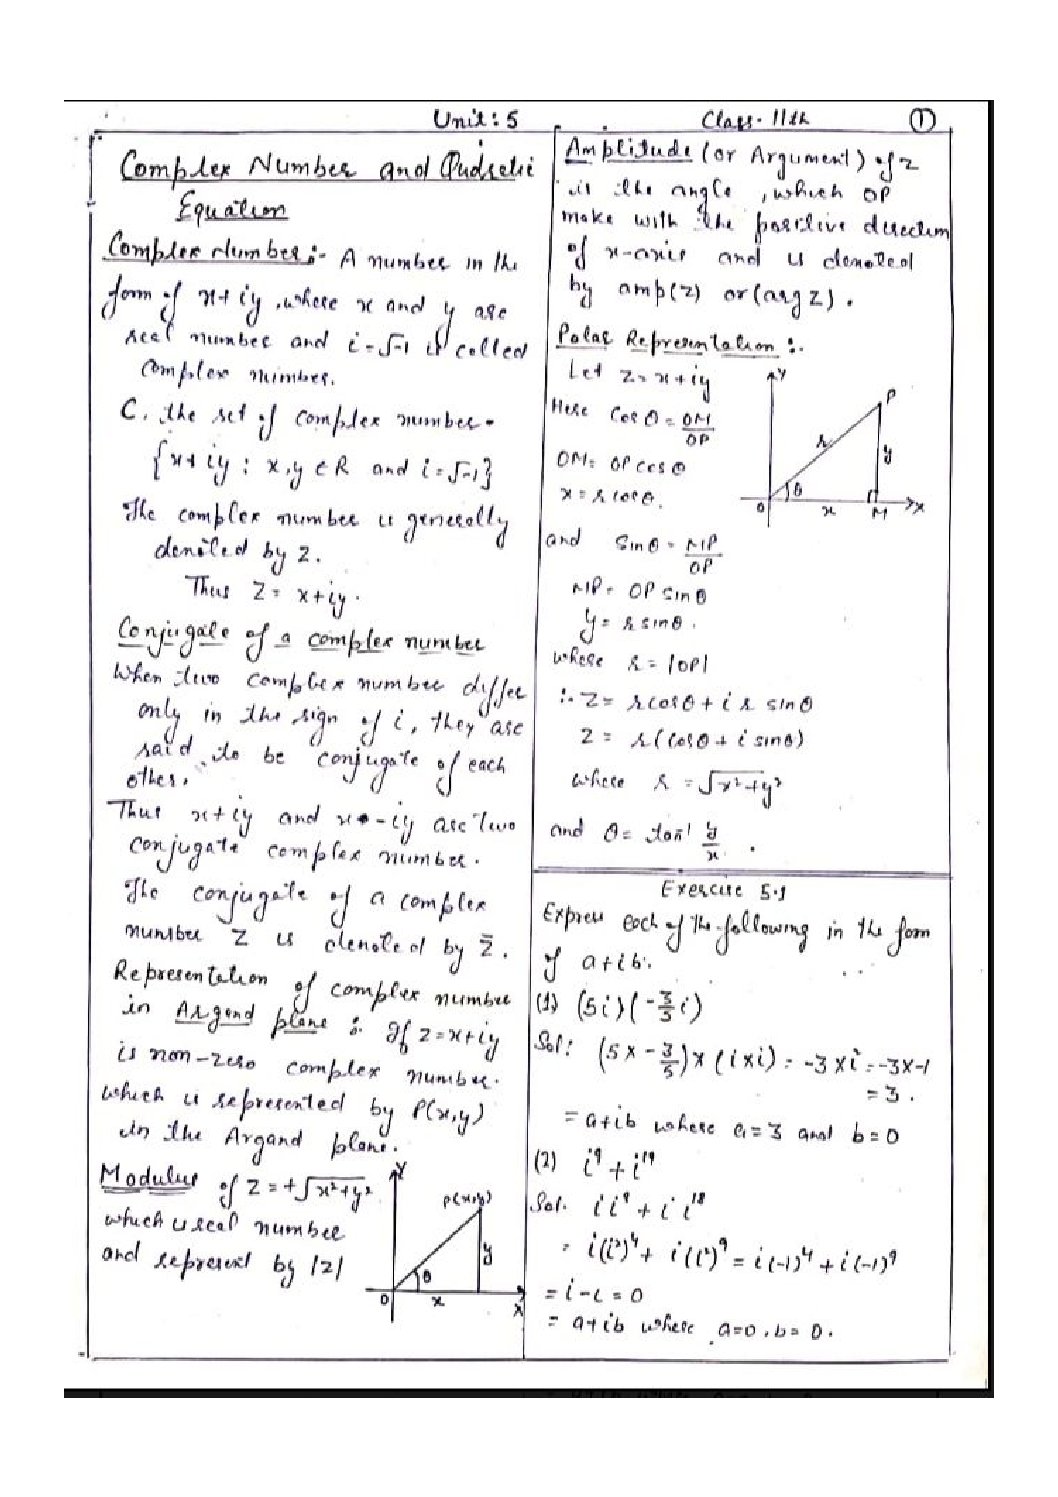 Unit: 5
Class- 11th
1
Complex Number and Qudratic
Equation
Complex Number :- A number in the
form of x+iy, where x and y are
real number and i = √-1 is called
Complex number.
C. the set of complex number-
{x+iy : x,y ∈ R and i = √-1}
The complex number is generally
denoted by z.
Thus Z = x+iy.
Conjugate of a complex number
When two complex number differ
only in the sign of i, they are
said to be conjugate of each
other.
Thus x+iy and x-iy are two
conjugate complex number.
The conjugate of a complex
number Z is denoted by z̄.
Representation of complex number
in Argand plane :. If z=x+iy
is non-zero complex number.
which is represented by P(x,y)
in the Argand plane.
Modulus of Z = +√x²+y²
which is real number
and represent by |z|
Y
P(x,y)
y
θ
O
x
X
Amplitude (or Argument) of z
is the angle, which OP
make with the positive direction
of x-axis and is denoted
by amp(z) or (arg z).
Polar Representation :.
Let z = x+iy
Here Cos θ = OM/OP
OM = OP cos θ
x = r cos θ.
Y
P
r
y
θ
O
x
M
X
and Sin θ = MP/OP
MP = OP sin θ
y = r sin θ.
where r = |OP|
∴ Z = r cos θ + i r sin θ
Z = r (cos θ + i sin θ)
where r = √x²+y²
and θ = tan⁻¹ y/x.
Exercise 5.1
Express each of the following in the form
of a+ib.
(1) (5i)(-3/5 i)
Sol: (5 x -3/5) x (i x i) = -3 x i² = -3 x -1
= 3.
= a+ib where a = 3 and b = 0
(2) i⁹ + i¹⁹
Sol. i i⁸ + i i¹⁸
= i(i²)⁴ + i(i²)⁹ = i(-1)⁴ + i(-1)⁹
= i - i = 0
= a+ib where a=0, b=0.